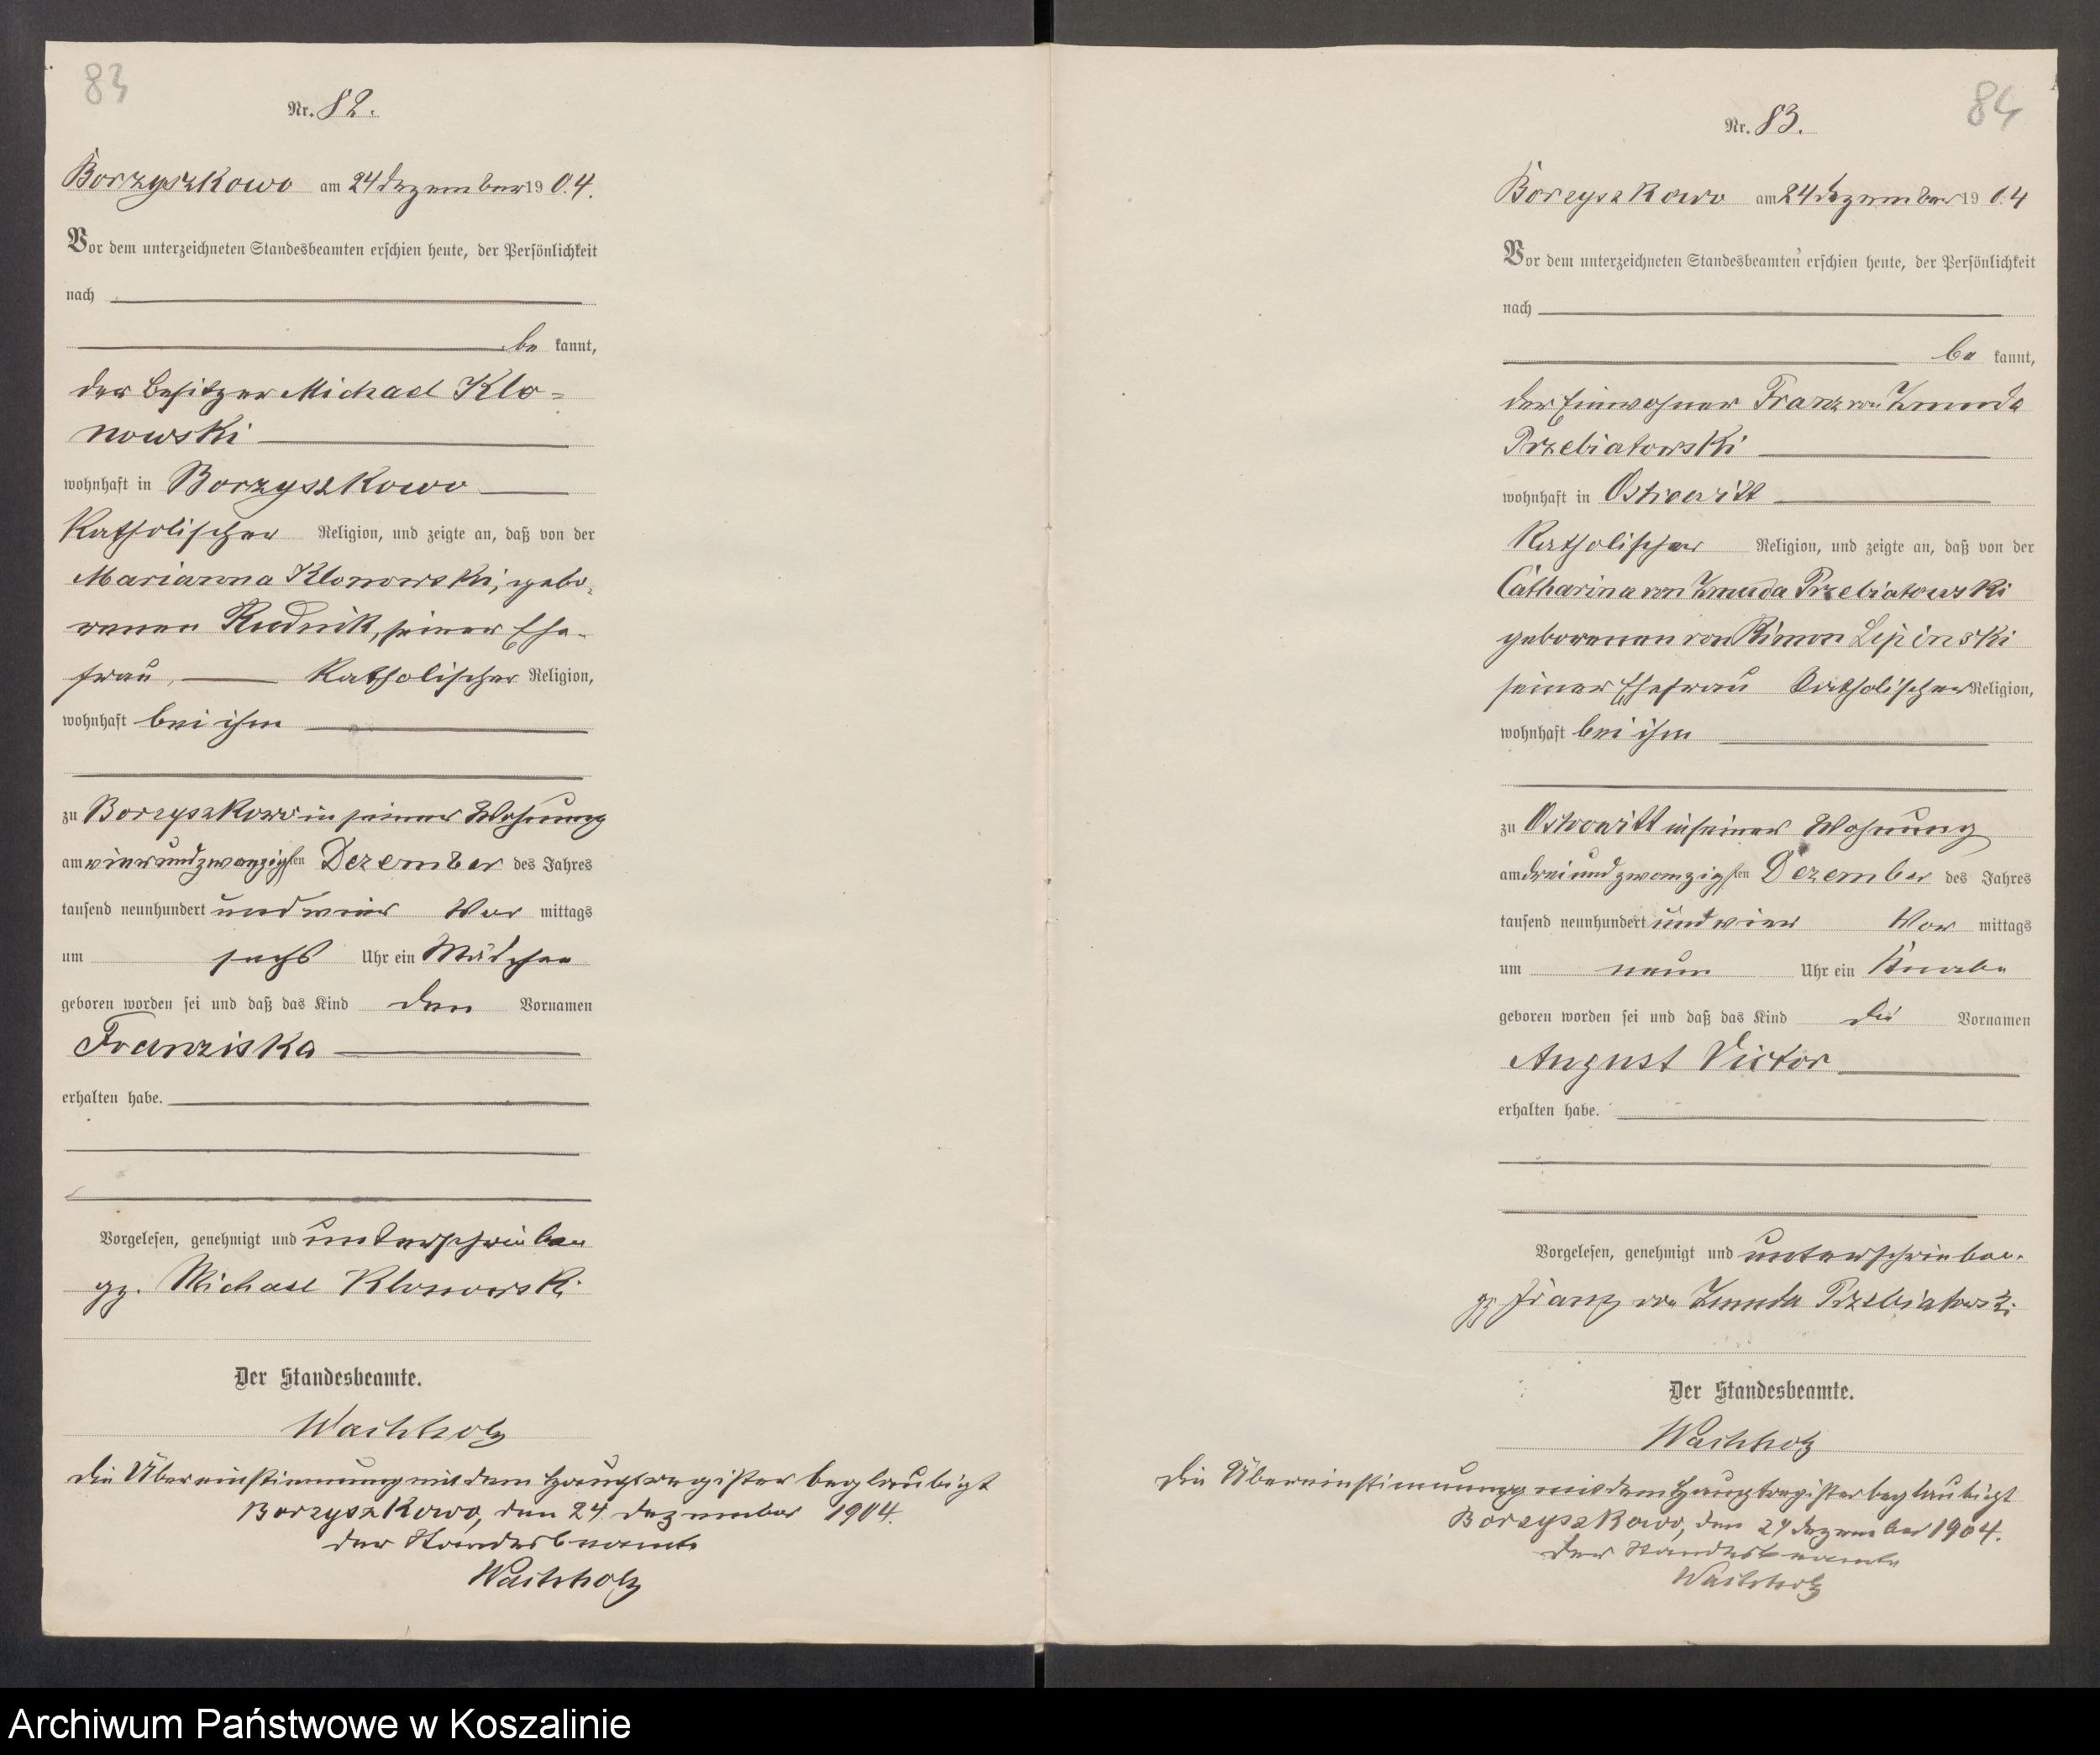 83
Nr. 82.
Borzyszkowo am 24 Dezember 1904.
Vor dem unterzeichneten Standesbeamten erschien heute, der Persönlichkeit
nach
be kannt,
der Besitzer Michael Klo=
nowski
wohnhaft in Borzyszkowo
katholischer Religion, und zeigte an, daß von der
Marianna Klonowski, gebo-
renen Rudnik, seiner Ehe-
frau, katholischer Religion,
wohnhaft bei ihm
zu Borzyszkowo in seiner Wohnung
am vierundzwanzigsten Dezember des Jahres
tausend neunhundert und vier Vor mittags
um sechs Uhr ein Mädchen
geboren worden sei und daß das Kind den Vornamen
Franziska
erhalten habe.
Vorgelesen, genehmigt und unterschrieben
gz. Michael Klonowski
Der Standesbeamte.
Wachholz
Die Übereinstimmung mit dem Hauptregister beglaubigt
Borzyszkowo, den 24. Dezember 1904.
Der Standesbeamte
Wachholz
84
Nr. 83.
Borzyszkowo am 24 Dezember 1904
Vor dem unterzeichneten Standesbeamten erschien heute, der Persönlichkeit
nach
be kannt,
der Einwohner Franz von Zmuda
Przebiatowski
wohnhaft in Ostrowitt
katholischer Religion, und zeigte an, daß von der
Catharina von Zmuda Przebiatowski
geborenen von Lipinski
seiner Ehefrau katholischer Religion,
wohnhaft bei ihm
zu Ostrowitt in seiner Wohnung
am dreiundzwanzigsten Dezember des Jahres
tausend neunhundert und vier Vor mittags
um neun Uhr ein Knabe
geboren worden sei und daß das Kind die Vornamen
August Victor
erhalten habe.
Vorgelesen, genehmigt und unterschrieben.
gz Franz von Zmuda Przebiatowski
Der Standesbeamte.
Wachholz
Die Übereinstimmung mit dem Hauptregister beglaubigt
Borzyszkowo, den 24 Dezember 1904.
Der Standesbeamte
Wachholz
Archiwum Państwowe w Koszalinie